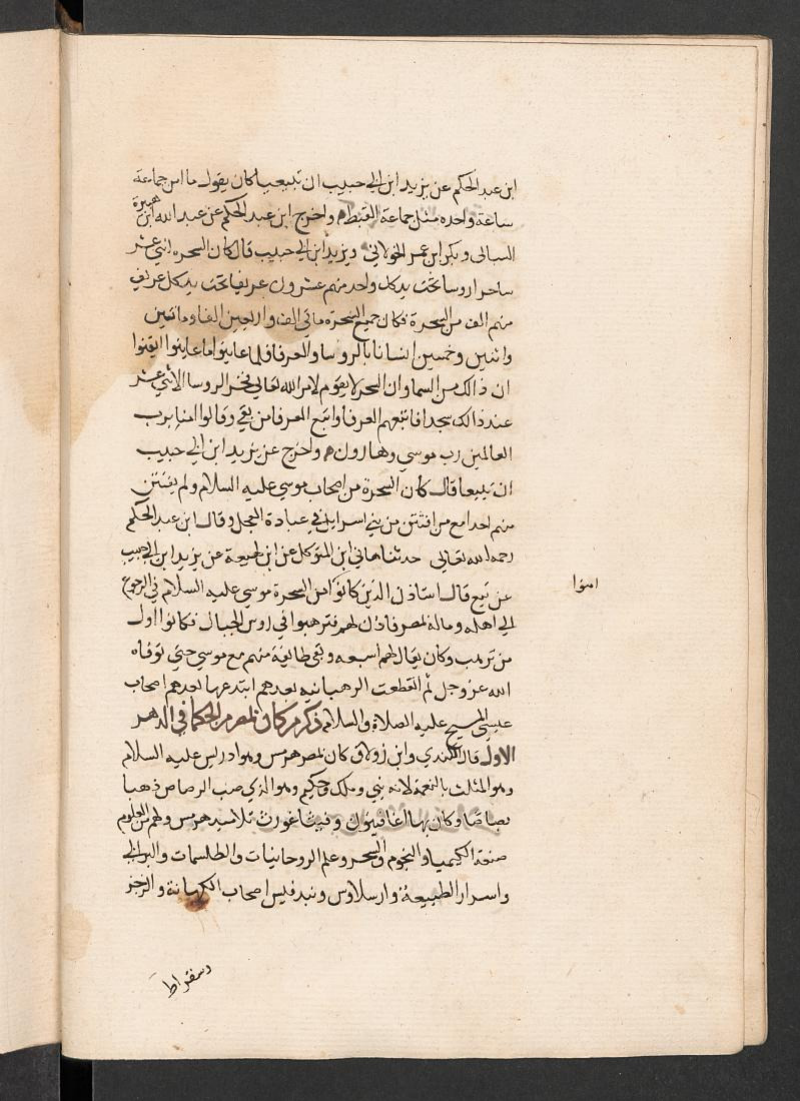 ابن عبد الحكم عن يزيد ابن ابي حبيب ان تبيعا كان يقول ما امن جماعة
ساعة واحده مثل جماعة القبط واخرج ابن عبد الحكم عن عبد الله ابن هبيرة
السباى وبكر ابن عمر الخولاني ويزيد ابن ابي حبيب قال كان السحره اثني عشر
ساحرا روسا تحت يد كل واحد منهم عشرون عريفا تحت يد كل عريف
منهم الف من السحرة فكان جميع السحرة مائتي الف واربعين الفا ومائتين
واثنين وخمسين انسانا بالروسا والعرفا فلما عاينوا ما عاينوا ايقنوا
ان ذالك من السما وان السحر لا يقوم لامر الله تعالي فخر الروسا الاثني عشر
عند ذالك سجدا فاتبعهم العرفا واتبع العرفا من بقي وقالوا امنا برب
العالمين رب موسي وهارون واخرج عن يزيد ابن ابي حبيب
ان تبيعا قال كان السحرة من اصحاب موسي عليه السلام ولم يفتتن
منهم احد امع من افتتن من بني اسرايل في عبادة العجل وقال ابن عبد الحكم
رحمه الله تعالي حدثنا هاني ابن المتوكل عن ابن لهيعة عن يزيد ابن ابي حبيب
عن تبيع قال استاذن الذين كانوا من السحرة موسي عليه السلام في الرجوع
امنوا
الي اهله وماله بمصر فاذن لهم فترهبوا في روس الجبال فكانوا اول
من ترهب وكان يقال لهم اسبعه وبقي طائفة منهم مع موسي حتي توفاه
الله عز وجل ثم انقطعت الرهبانيه بعدهم ابتدعها بعدهم اصحاب
عيسي المسيح عليه الصلاة والسلام ذكر من كان بمصر من الحكما في الدهر
الاول قال الكندي وابن زولاق كان بمصر هرمس وهو ادريس عليه السلام
وهو المثلث بالنعمة لانه نبي وملك وحكيم وهو الذي صب الرصاص ذهبا
بصاصا وكان بها اغاثيون وفيثاغورث تلاميد هرمس ولهم من العلوم
صنعة الكيميا والنجوم والسحر وعلم الروحانيات والطلسمات والبرابي
واسرار الطبيعة وارسلاوس وبندقليس اصحاب الكهانة والزجر
وسقراط